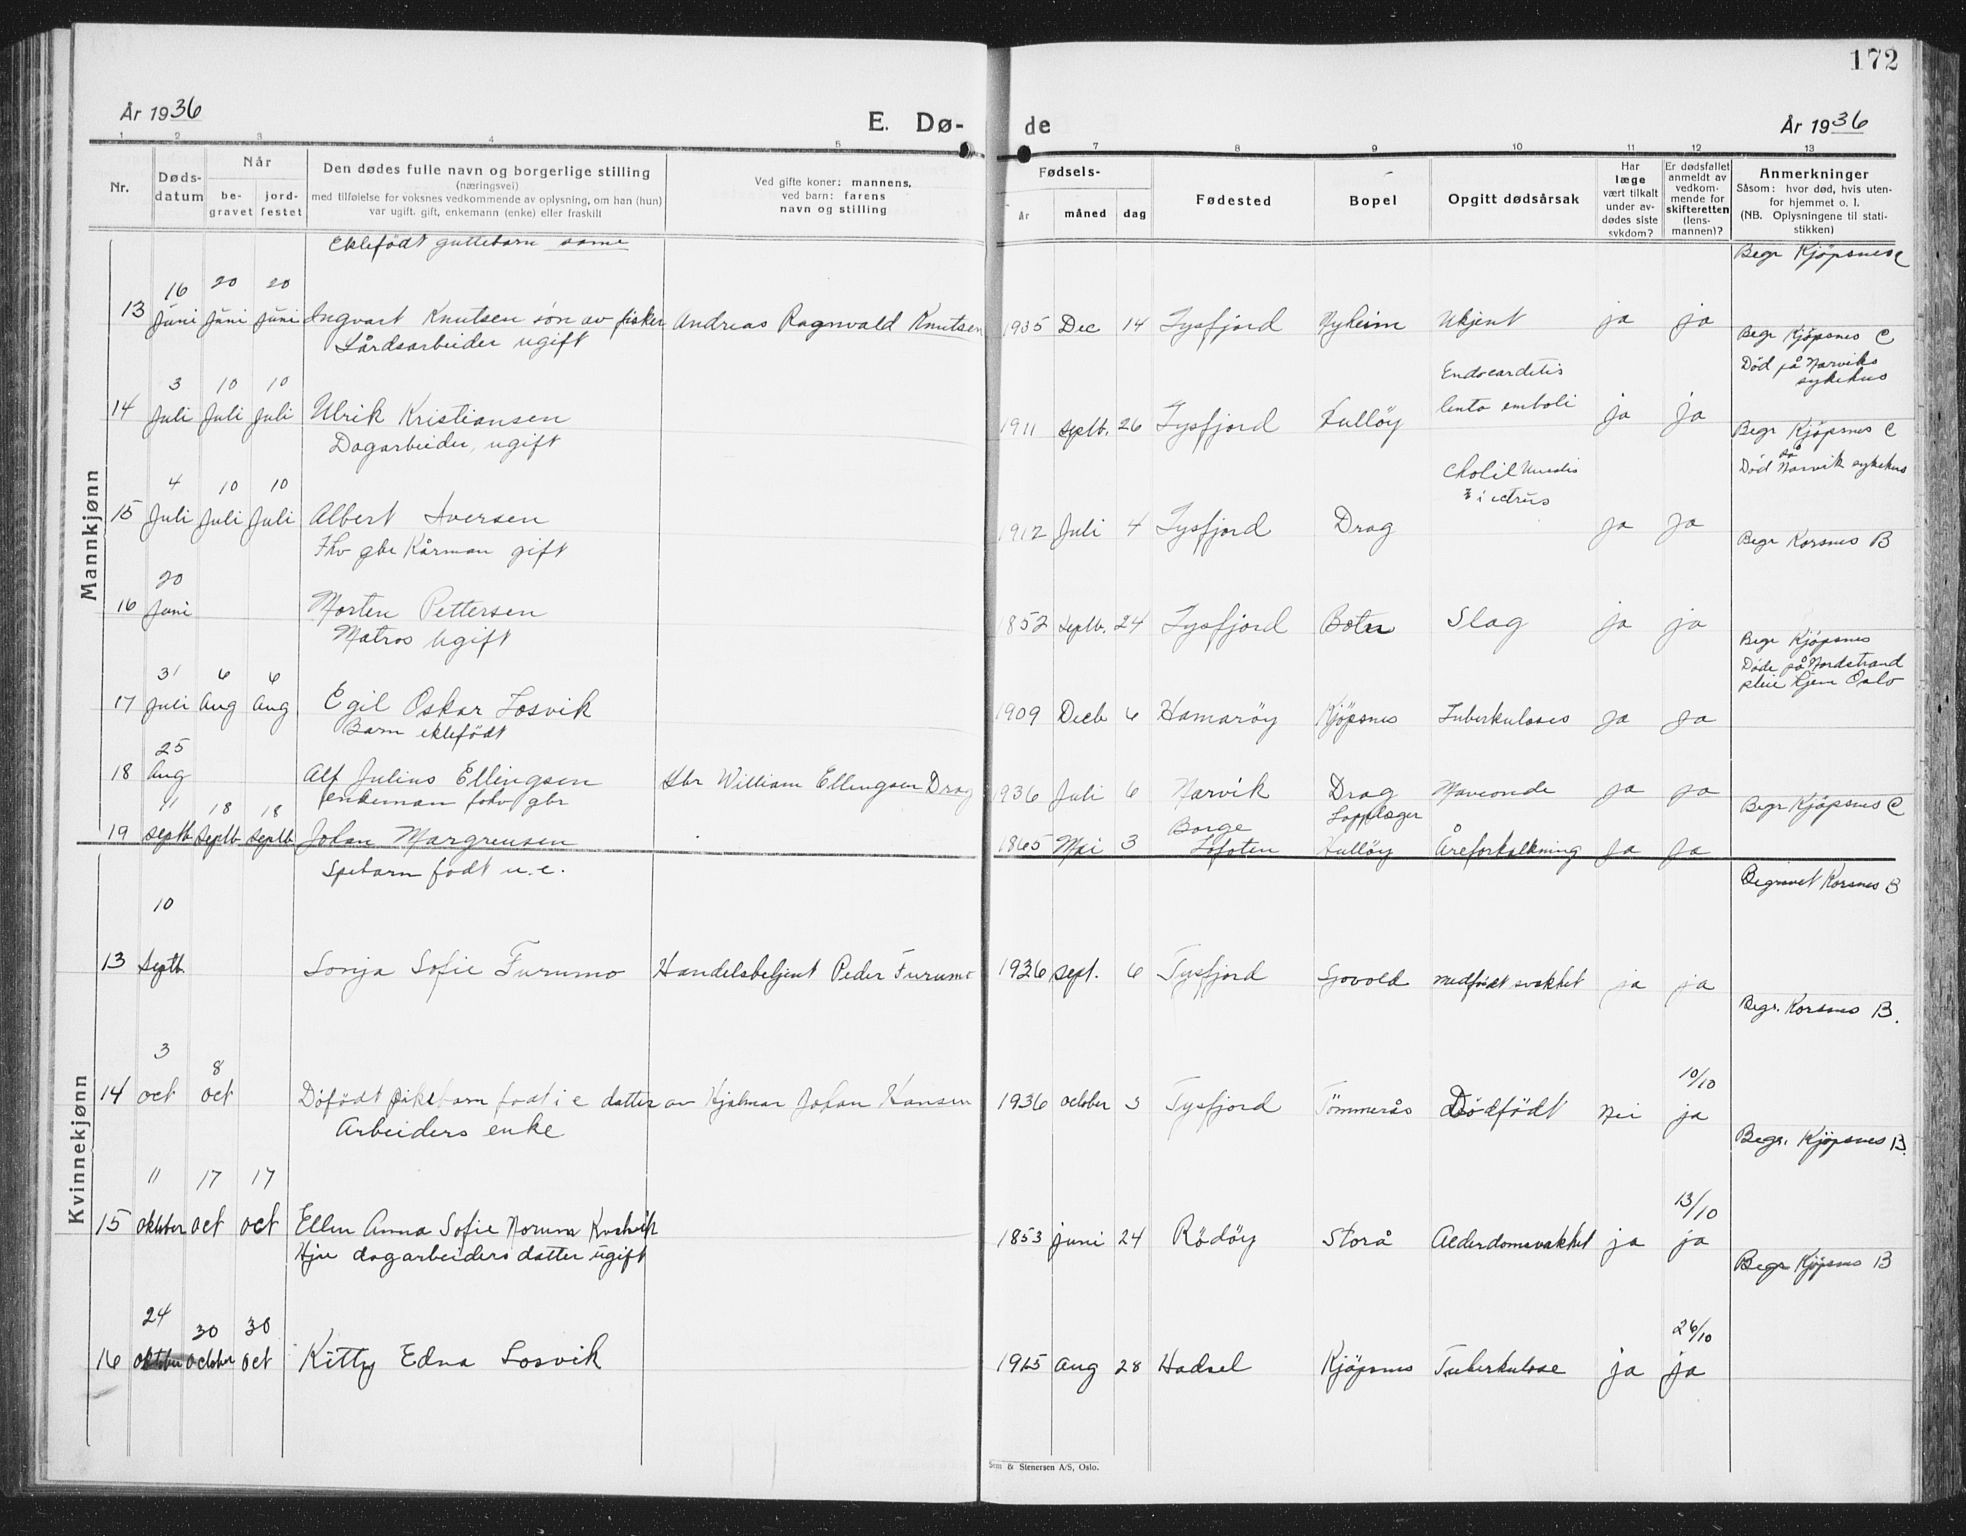 172
År 1936
E. Dø-
de
År 1936
1 2 3 4 5 7 8 9 10 11 12 13
Nr.
Døds-
datum
Når
be-
gravet
jord-
festet
Den dødes fulle navn og borgerlige stilling
(næringsvei)
med tilføielse for voksnes vedkommende av oplysning, om han (hun)
var ugift, gift, enkemann (enke) eller fraskilt
Ved gifte koner: mannens,
ved barn: farens
navn og stilling
Fødsels-
År måned dag
Fødested
Bopel
Opgitt dødsårsak
Har
læge
vært tilkalt
under av-
dødes siste
sykdom?
Er dødsfallet
anmeldt av
vedkom-
mende for
skifteretten
(lens-
mannen)?
Anmerkninger
Såsom: hvor død, hvis uten-
for hjemmet o. l.
(NB. Oplysningene til stati-
stikken)
Mannkjønn
Ektefödt guttebarn same
Begr Kjöpsnes C
16 20 20
13 Juni Juni Juni Ingvart Knutsen sön av fisker Andreas Ragnvald Knutsen 1935 Dec 14 Tysfjord Nyheim Ukjent ja ja
Gårdsarbeider ugift
Begr Kjöpsnes C
Död på Narviks
sykehus
3 10 10
Endocarditis
14 Juli Juli Juli Ulrik Kristiansen 1911 Septb. 26 Tysfjord Hullöy lenta emboli ja ja
Dagarbeider, ugift
Begr Kjöpsnes C
Död på Narvik sykehus
4 10 10
i uctrus
15 Juli Juli Juli Albert Iversen 1912 Juli 4 Tysfjord Drag ja ja
Fhv gbr Kårman gift
Begr Korsnes B
20
16 Juni Morten Pettersen 1852 Septb. 24 Tysfjord Botn Slag ja ja
Matros Ugift
Begr Kjöpsnes
Döde på Nordstrand
pleie hjem Oslo
31 6 6
17 Juli Aug Aug Egil Oskar Losvik 1909 Decb 6 Hamaröy Kjöpsnes Tuberkuloses ja ja
Barn ektefödt
25
18 Aug Alf Julius Ellingsen Gbr William Ellingsen Drag 1936 Juli 6 Narvik Drag ja ja
enkeman gbr
Begr Kjöpsnes C
11 18 18
Borge
19 Septb Septb Septb Johan Margreusen 1865 Mai 3 Lofoten Hullöy Åreforkalkning ja ja
Kvinnekjønn
Spebarn födt u.e.
Begravet Korsnes B
10
13 Septb Sonja Sofie Furumo Handelsbetjent Peder Furumo 1936 Sept. 6 Tysfjord medfödt svakhet ja ja
Begr. Korsnes B.
3 8 10/10
14 oct oct Döfödt pikebarn födt i e datter av Hjalmar Johan Hansen 1936 october 3 Tysfjord Tömmerås Dödfödt Nei ja
Arbeiders enke
Begr. Kjöpsnes B
11 17 17 13/10
15 oktober oct oct Ellen Anna Sofie Norum 1853 juni 24 Rödöy Storå Alderdomsvakhet ja ja
dagarbeiders datter ugift
Begr Kjöpsnes B
24 30 30 26/10
16 oktober october oct Kitty Edna Losvik 1915 aug 28 Hadsel Kjöpsnes Tuberkulose ja ja
Sem & Stenersen A/S, Oslo.